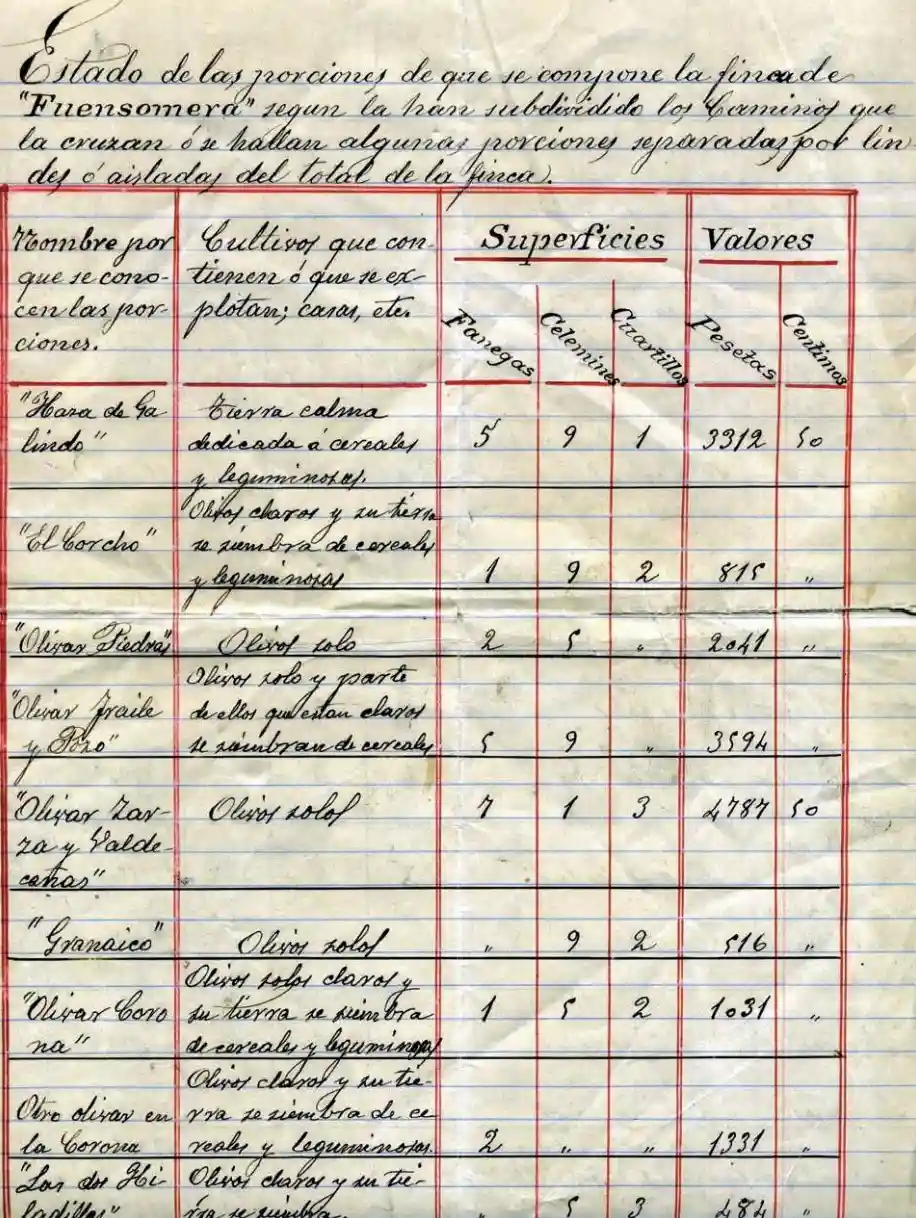 Estado de las porciones de que se compone la finca de
"Fuensomera" segun la han subdividido los Caminos que
la cruzan ó se hallan algunas porciones separadas por lin-
des ó aisladas del total de la finca.
Nombre por
que se cono-
cen las por-
ciones.
Cultivos que con-
tienen ó que se ex-
plotan; casas, etc.
Superficies
Valores
Fanegas
Celemines
Cuartillos
Pesetas
Centimos
"Haza de Ga
lindo"
Tierra calma
dedicada á cereales
y leguminosas.
5 9 1 3312 50
"El Corcho"
Olivos claros y su tierra
se siembra de cereales
y leguminosas
1 9 2 815 "
"Olivar Piedras"
Olivos solo
2 5 " 2041 "
"Olivar Fraile
y Pozo"
Olivos solo y parte
de ellos que estan claros
se siembran de cereales
5 9 " 3594 "
"Olivar Zar-
za y Valde-
cañas"
Olivos solos
7 1 3 4787 50
"Granaico"
Olivos solos
" 9 2 516 "
"Olivar Coro
na"
Olivos solos claros y
su tierra se siembra
de cereales y leguminosas
1 5 2 1031 "
Otro olivar en
la Corona
Olivos claros y su tie-
rra se siembra de ce
reales y leguminosas.
2 " " 1331 "
"Las dos Hi-
ladillas"
Olivos claros y su tie-
rra se siembra.
" 5 3 484 "